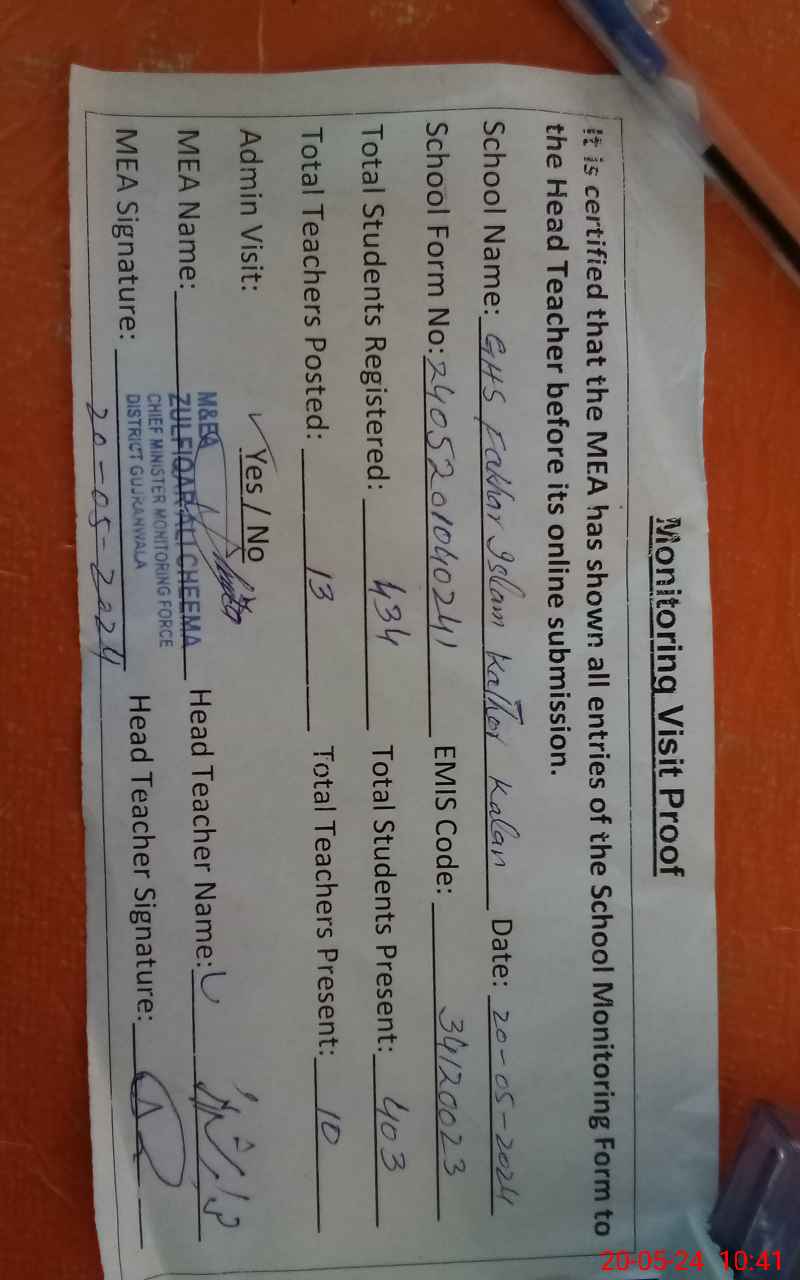 Monitoring Visit Proof
It is certified that the MEA has shown all entries of the School Monitoring Form to
the Head Teacher before its online submission.
School Name: GHS Fakhar Islam Kathor Kalan Date: 20-05-2024
School Form No: 2405201040241 EMIS Code: 34120023
Total Students Registered: 434 Total Students Present: 403
Total Teachers Posted: 13 Total Teachers Present: 10
Admin Visit: ✓ Yes / No
MEA Name: Head Teacher Name:
M&EA
ZULFIQAR ALI CHEEMA
CHIEF MINISTER MONITORING FORCE
DISTRICT GUJRANWALA
MEA Signature: Head Teacher Signature:
20-05-2024
20-05-24 10:41